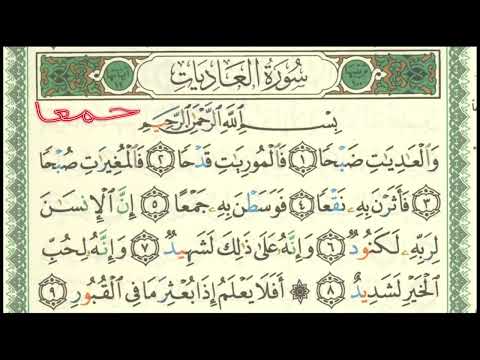 سُورَةُ الْعَادِيَاتِ
حمعا
بِسْمِ اللَّهِ الرَّحْمَٰنِ الرَّحِيمِ
وَالْعَادِيَاتِ ضَبْحًا ١ فَالْمُورِيَاتِ قَدْحًا ٢ فَالْمُغِيرَاتِ صُبْحًا
٣ فَأَثَرْنَ بِهِ نَقْعًا ٤ فَوَسَطْنَ بِهِ جَمْعًا ٥ إِنَّ الْإِنسَانَ
لِرَبِّهِ لَكَنُودٌ ٦ وَإِنَّهُ عَلَىٰ ذَٰلِكَ لَشَهِيدٌ ٧ وَإِنَّهُ لِحُبِّ
الْخَيْرِ لَشَدِيدٌ ٨ ۞ أَفَلَا يَعْلَمُ إِذَا بُعْثِرَ مَا فِي الْقُبُورِ ٩